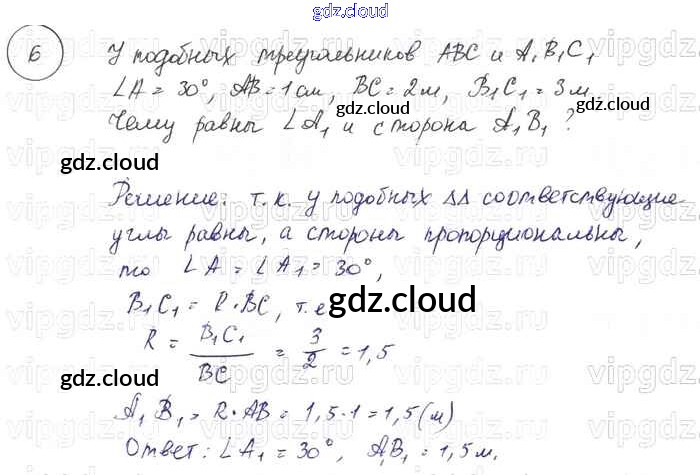 gdz.cloud
6 У подобных треугольников ABC и A₁B₁C₁
∠A = 30°, AB = 1 см, BC = 2 м, B₁C₁ = 3 м
gdz.cloud
Чему равны ∠A₁ и сторона A₁B₁?
gdz.cloud gdz.cloud
Решение: т.к. у подобных ΔΔ соответствующие
углы равны, а стороны пропорциональны,
то ∠A = ∠A₁ = 30°,
B₁C₁ = R·BC, т.е
gdz.cloud
R = B₁C₁/BC = 3/2 = 1,5
gdz.cloud gdz.cloud
A₁B₁ = R·AB = 1,5·1 = 1,5 (м)
Ответ: ∠A₁ = 30°, A₁B₁ = 1,5 м.